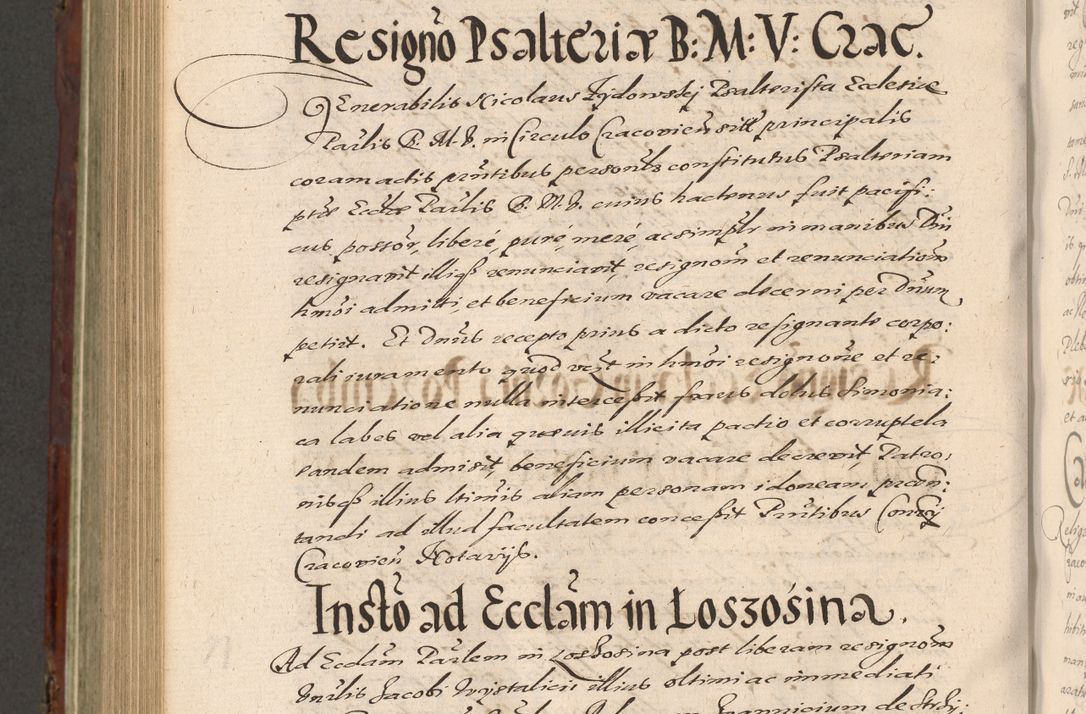 Resigno Psalteriæ B: M: V: Crac.
Venerabilis Nicolaus Zydowskj Psalterista Ecclesiæ
Parlis B. M. V. in Circulo Cracovien sitæ principalis
coram actis pntibus personlr constitutus Psalteriam
ptæ Ecclæ Parlis B. M. V. cuius hactenus fuit pacifi:
cus possor, liberé, puré, meré, ac simplr in manibus Dni
resignavit illiq3 renunciavit, resignom et renunciationem
hmoi admitti, et beneficium vacare decerni per Dnum
petivit. Et Dnus recepto prius a dicto resignante corpo:
rali iuramento quod in hmoi resignone et re:
nunciatione nulla intercessit fraus dolus simonia:
ca labes vel alia quævis illicita pactio et corruptela
eandem admisit, beneficium vacare decrevit, Patro:
nisq3 illius ltimis aliam personam idoneam præsen:
tandi ad illud facultatem concessit Pntibus
Cracovien Notarijs.
Insto ad Ecclam in Łoszosina.
Ad Ecclam Parlem in Łoszosina post liberam resignom
Vnilis Jacobi illius ultimi ac immediati
de